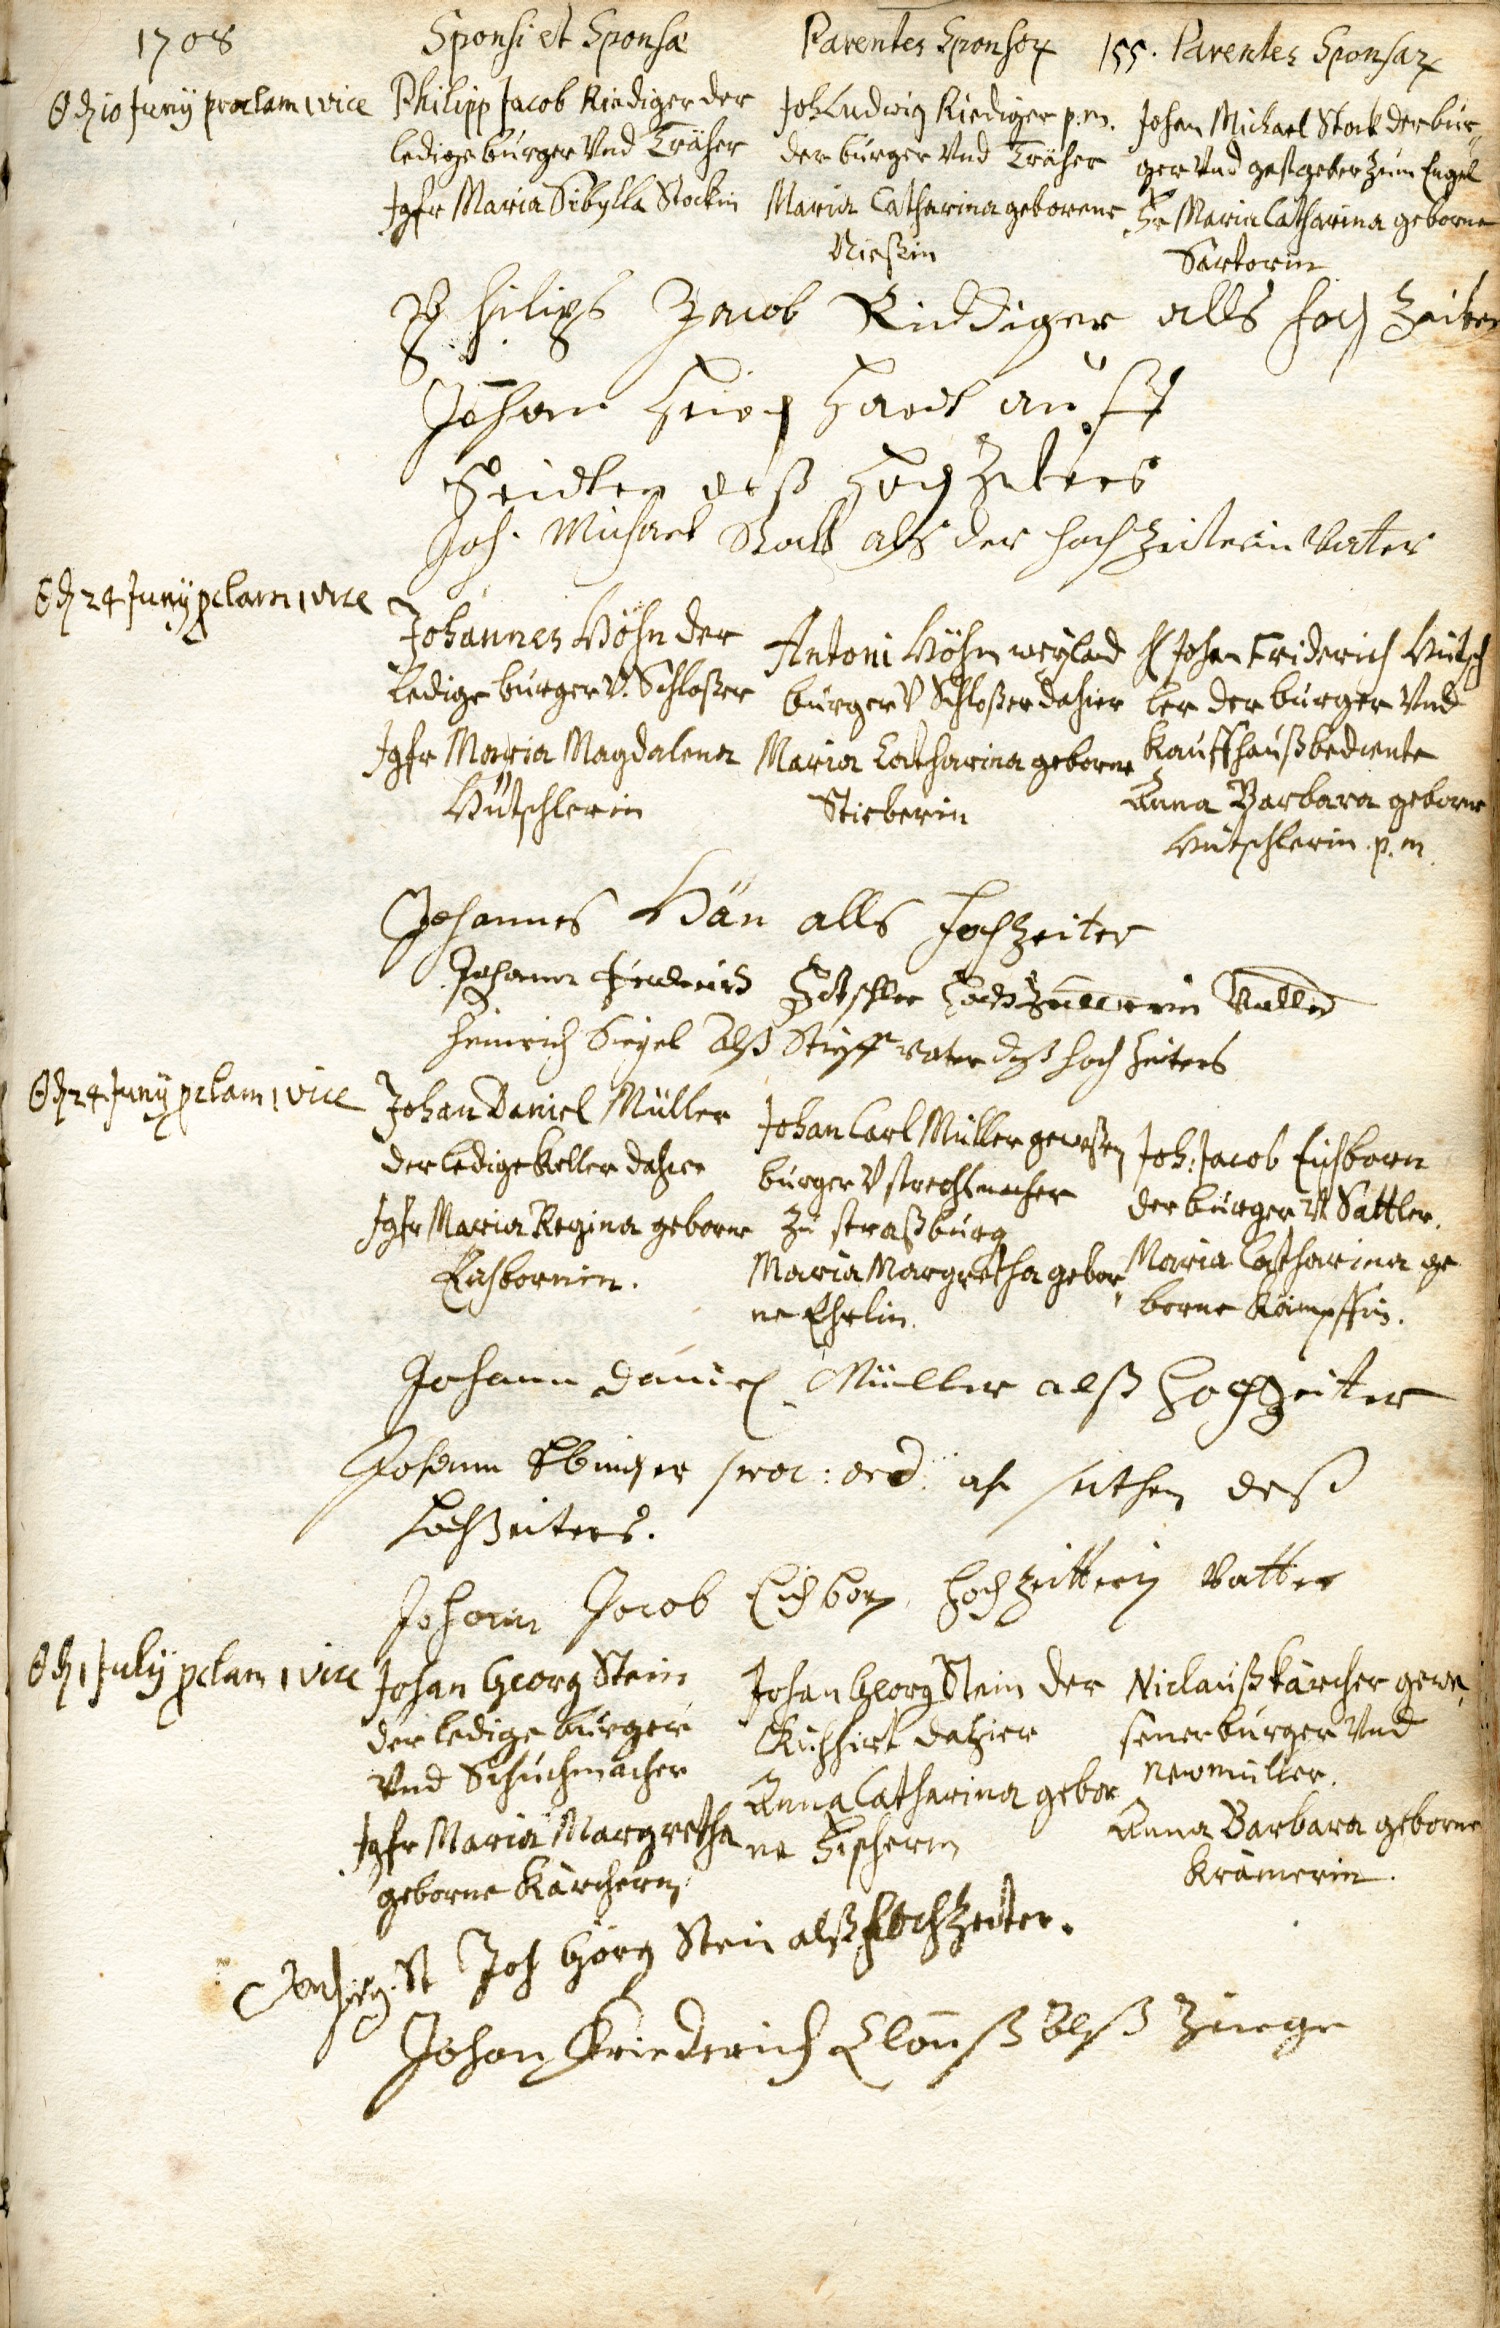 1708
Sponsi et Sponsæ
Parentes Sponsor
155. Parentes Sponsar
10 Juny proclam 1 vice
Philipp Jacob Riediger der
ledige burger Vnd Träher
Jgfr Maria Sibylla Stockin
Joh Ludwig Riediger p.m.
der burger Vnd Träher
Maria Catharina geborene
Nießin
Johan Michael Stock der bur„
ger Vnd gastgeber zum Engel
Fr Maria Catharina geborne
Sartorin
Philips Jacob Riddiger alls hoch Zeiter
Johan Hardt auff
Seidten deß Hoch Zeiters
Joh. Michael Stock alß der hoch Zeiterin Vater
24 Juny pclam 1 vice
Johannes Höhn der
ledige burger V. Schloßer
Jgfr Maria Magdalena
Hütschlerin
Antoni Höhn weylad
burger V Schloßer dahier
Maria Catharina geborne
Stieberin
H Johan Friderich Hütsch
ler der burger Vnd
Kauffhaußbediente
Anna Barbara geborne
Hütschlerin p.m.
Johannes Hän alls hochzeiter
Johann Friderich Hütschler Hochzeiterin Vatter
Heinrich Sigel alß Stieff vater deß hoch Zeiters
24 Juny pclam 1 vice
Johan Daniel Müller
der ledige Keller dahier
Jgfr Maria Regina geborne
Eichbornin.
Johan Carl Müller geweßen
burger V
zu straßburg
Maria Margretha gebor„
ne Ehrlin.
Joh: Jacob Eichborn
der burger V Sattler.
Maria Catharina ge
borne Kämpffin.
Johann Daniel Müller alß Hochzeiter
Johann Ebinger proc: ord: auf seithen deß
Hochzeiters.
Johann Jacob Eichborn Hochzeitterin Vatter
1 July pclam 1 vice
Johan Georg Stein
der ledige burger
Vnd Schuchmacher
Jgfr Maria Margretha
geborne Kärcherin
Johan Georg Stein der
Kühhirt dahier
Anna Catharina gebor
ne Fischerin
Niclauß Kärcher gewe„
sener burger Vnd
Newmüller.
Anna Barbara geborne
Krämerin.
St Joh Görg Stein alß Hochzeiter.
Johan Friederich Clauß Alß Zeuge